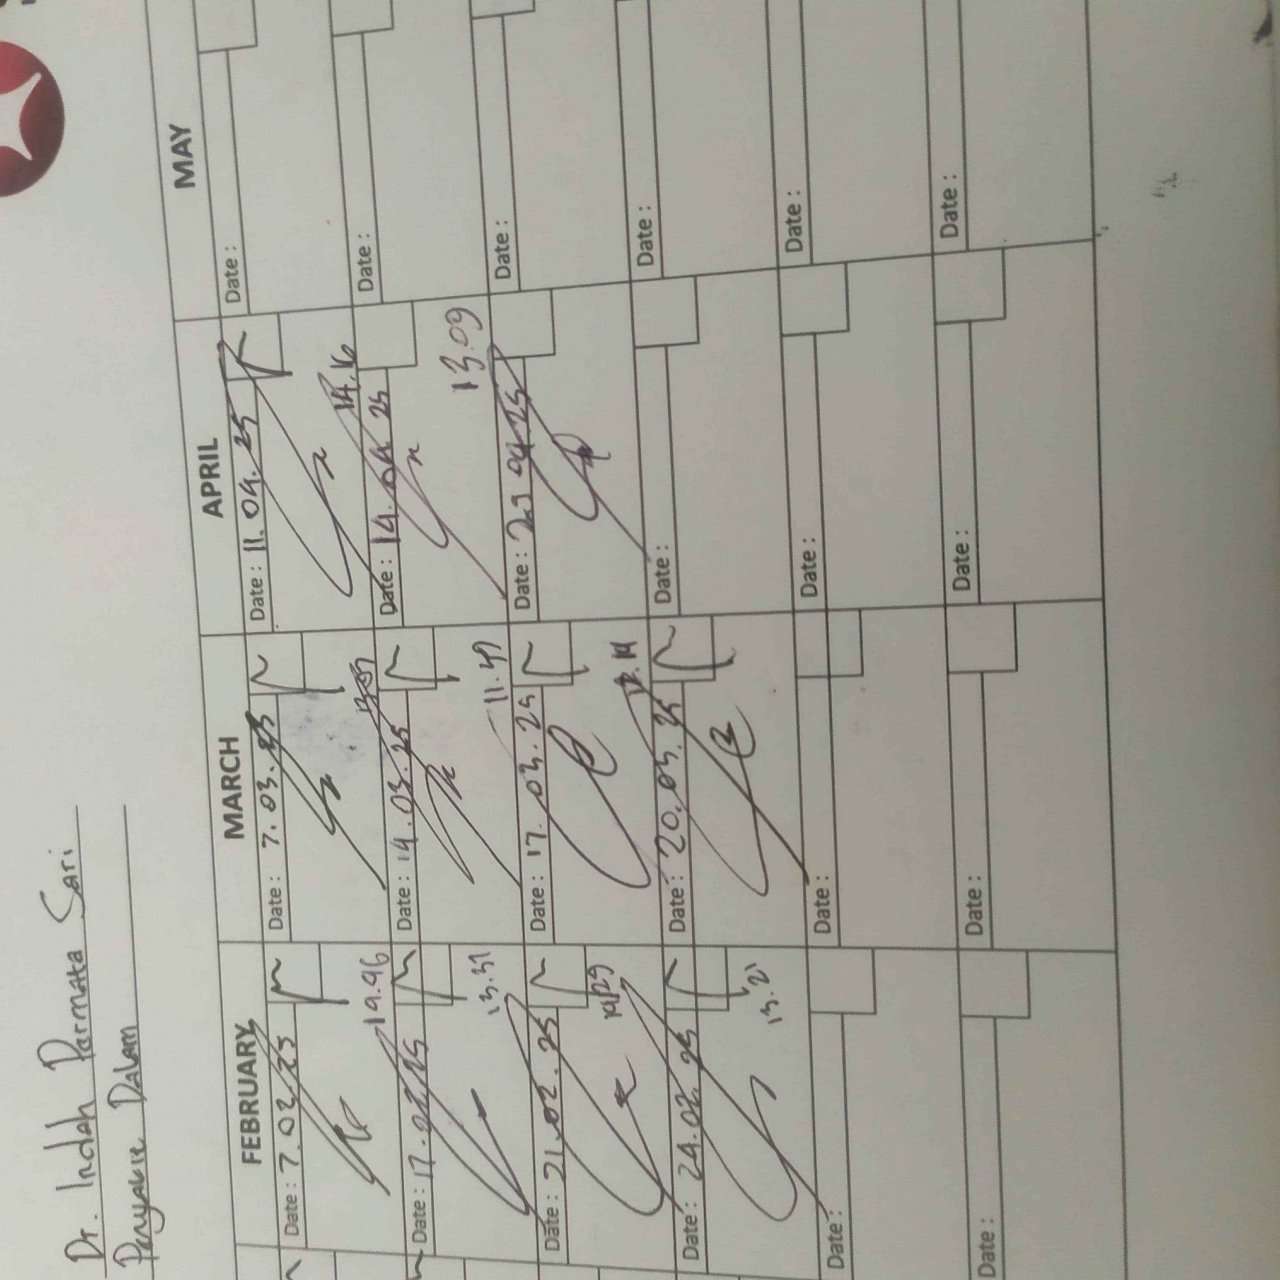 Dr. Indah Parmata Sari
Penyakit Dalam
FEBRUARY MARCH APRIL MAY
Date: 7.02.25 Date: 7.03.25 Date: 11.04.25 Date:
19.46 14.16
Date: 17.02.25 Date: 14.03.25 Date: 14.04.25 Date:
13.31 11.49 13.09
Date: 21.02.25 Date: 17.03.25 Date: 29.04.25 Date:
Date: 24.02.25 Date: 20.03.25 Date: Date:
13.21
Date: Date: Date: Date:
Date: Date: Date: Date: